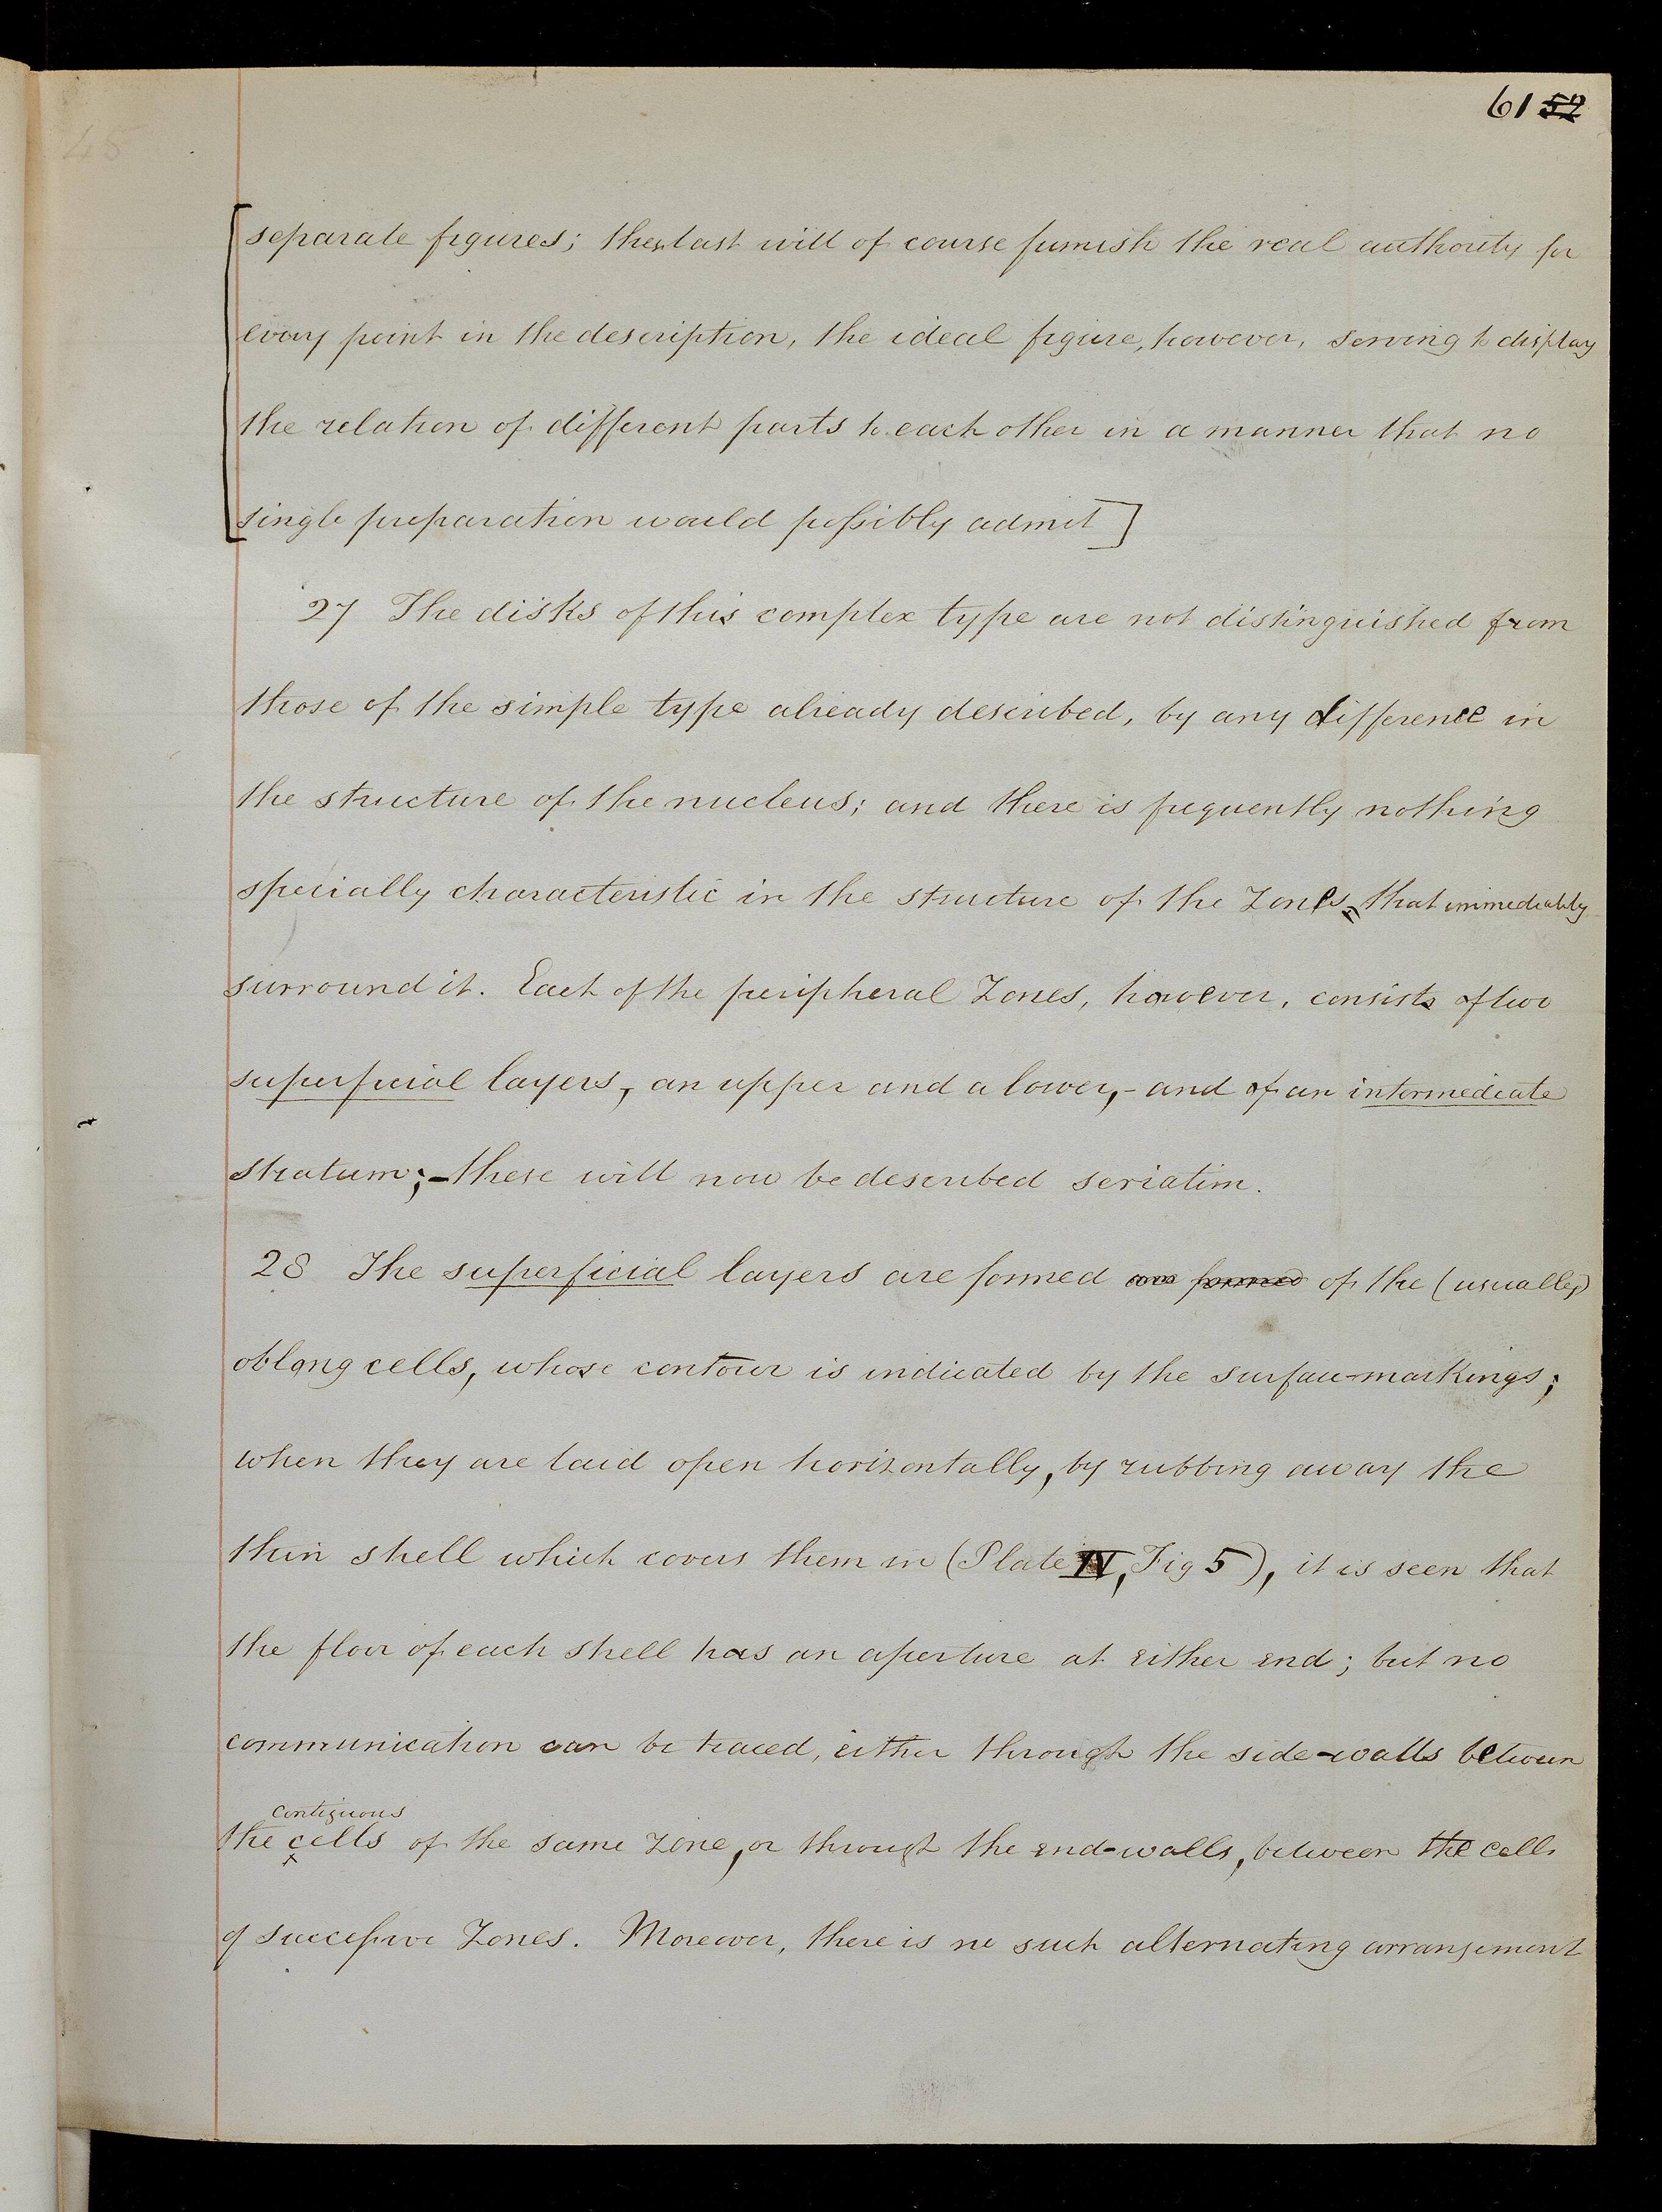 61 52
[separate figures; these last will of course furnish the real authority for
every point in the description, the ideal figure, however, serving to display
the relation of different parts to each other in a manner that no
single preparation would possibly admit]
27 The disks of this complex type are not distinguished from
those of the simple type already described, by any difference in
the structure of the nucleus; and there is frequently nothing
specially characteristic in the structure of the Zones that immediately
surround it. Each of the peripheral Zones, however, consists of two
superficial layers, an upper and a lower, - and of an intermediate
stratum; - these will now be described seriatim.
28 The superficial layers are formed are formed of the (usually)
oblong cells, whose contour is indicated by the surface-markings;
when they are laid open horizontally, by rubbing away the
thin shell which covers them in (Plate IV, Fig 5), it is seen that
the floor of each shell has an aperture at either end; but no
communication can be traced, either through the side-walls between
contiguous
the cells of the same Zone, or through the end-walls, between the cells
of successive Zones. Moreover, there is no such alternating arrangement